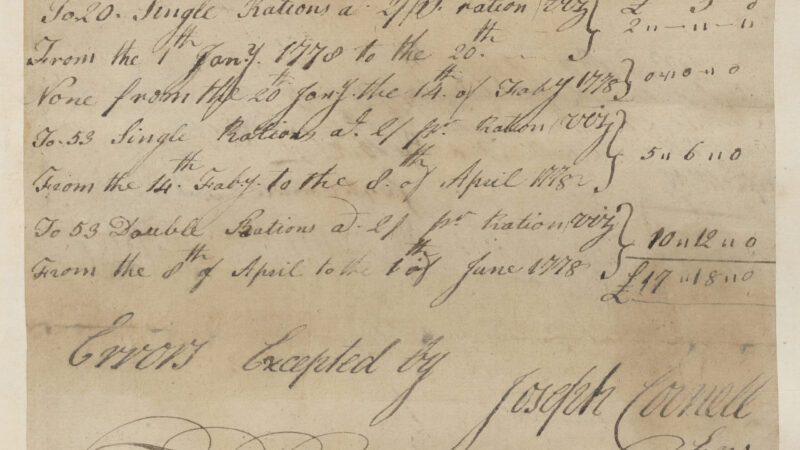 To 20 Single Rations a 2/ pr. ration (viz £ s d
2 " — " — "
From the 1th Jany. 1778 to the 20th
None from the 20th Jany. the 14th of Faby 1778 } 0 " 0 " 0
To 53 Single Rations a. 2/ pr Ration (viz
5 " 6 " 0
From the 14th Faby. to the 8th of April 1778
To 53 Double Rations a. 2/ pr Ration (viz
10 " 12 " 0
From the 8th of April to the 1th of June 1778
£ 17 " 18 " 0
Errors Excepted by
Joseph Cornell